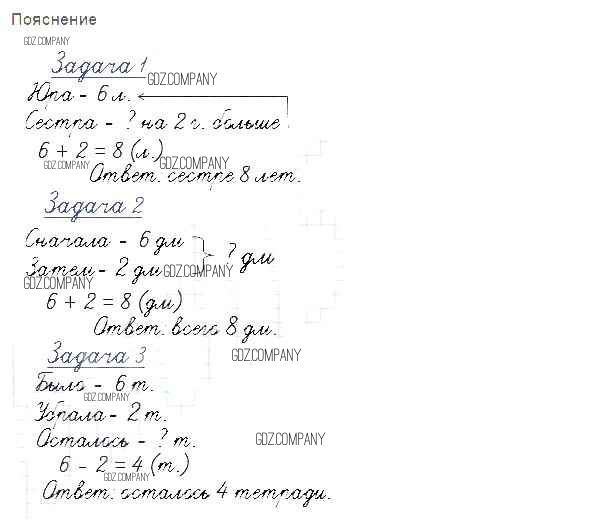 Пояснение
GDZ.COMPANY
Задача 1
GDZ.COMPANY
Юра - 6 л.
Сестра - ? на 2 г. больше
6 + 2 = 8 (л.)
GDZ.COMPANY GDZ.COMPANY
Ответ: сестре 8 лет.
Задача 2
Сначала - 6 дм
? дм
Затем - 2 дм GDZ.COMPANY
GDZ.COMPANY
6 + 2 = 8 (дм)
Ответ: всего 8 дм.
Задача 3 GDZ.COMPANY
Было - 6 т.
GDZ.COMPANY
Убрала - 2 т.
Осталось - ? т. GDZ.COMPANY
6 - 2 = 4 (т.)
GDZ.COMPANY
Ответ: осталось 4 тетради.